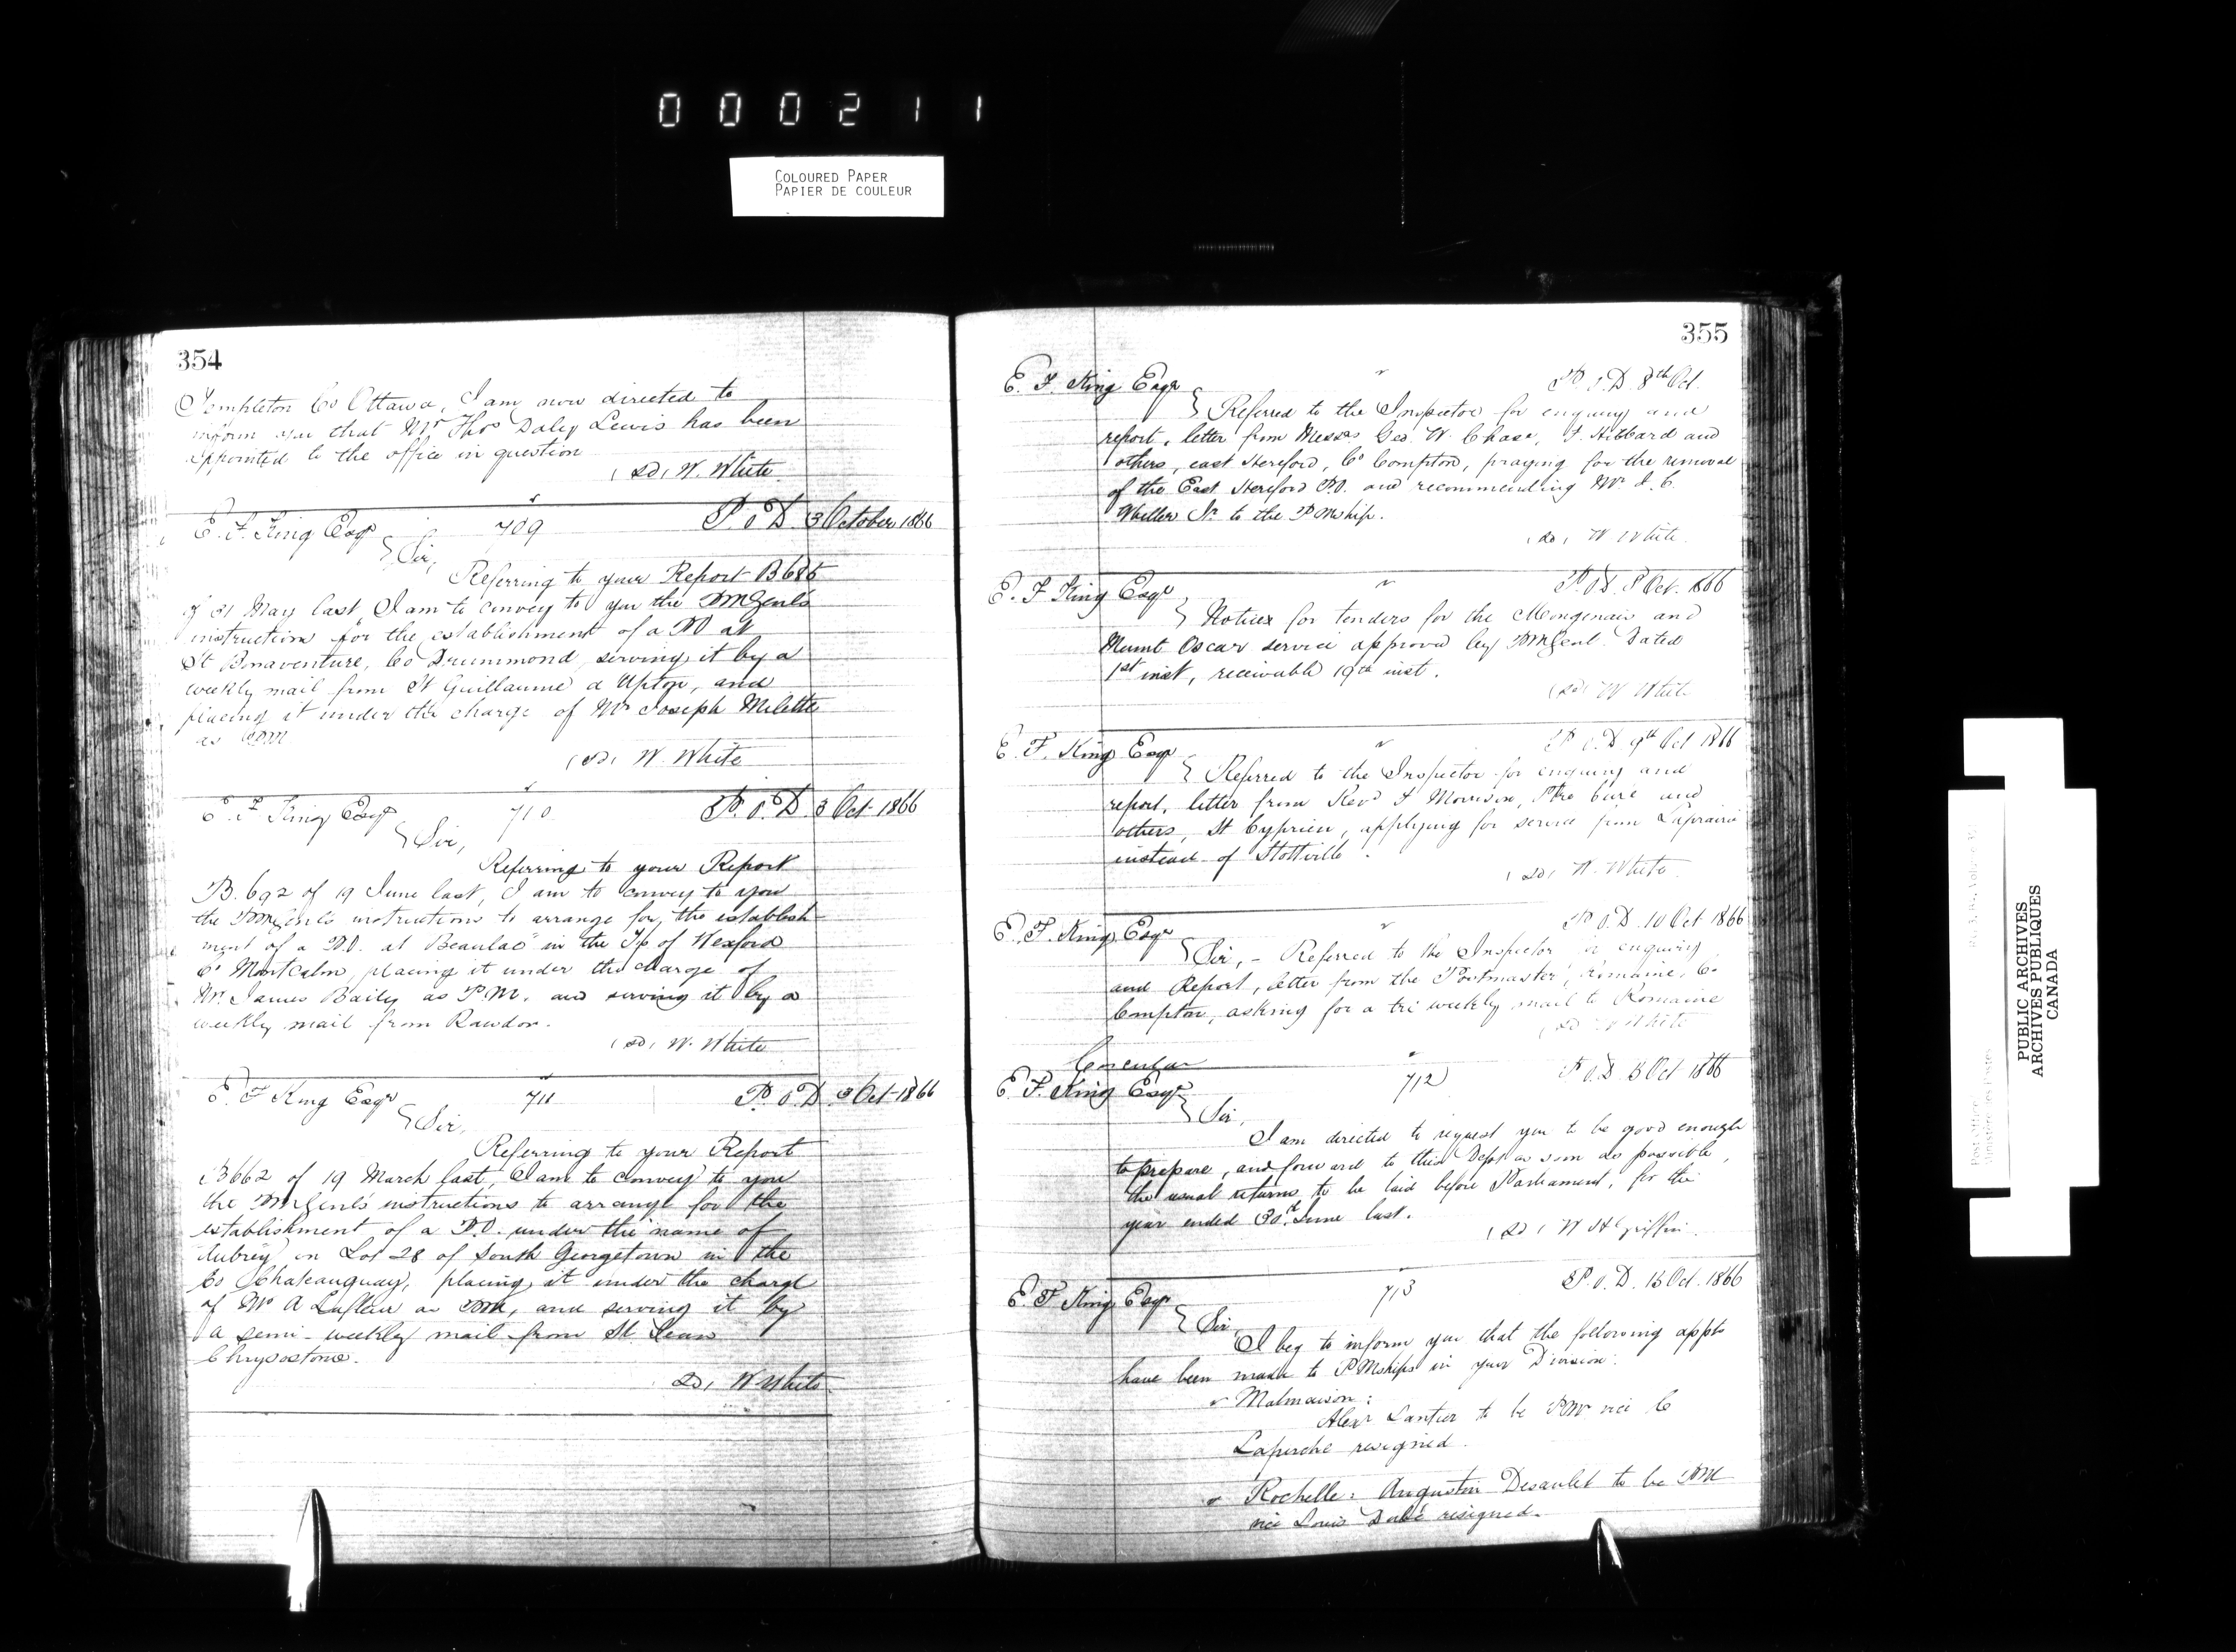 000211
COLOURED PAPER
PAPIER DE COULEUR
354
Templeton Co Ottawa, I am now directed to
inform you that Mr Thos Daley Lewis has been
appointed to the office in question
(sd) W. White
E. F. King Esqr 709 P.O.D. 3 October 1866
Sir,
Referring to your Report B686
of 31 May last, I am to convey to you the PMGenl's
instructions for the establishment of a PO at
St Bonaventure, Co Drummond, serving it by a
weekly mail from St Guillaume d Upton, and
placing it under the charge of Mr Joseph Milette
as PM
(sd) W. White
E. F. King Esqr 710 P.O.D. 3 Oct 1866
Sir,
Referring to your Report
B.692 of 19 June last, I am to convey to you
the PMGenl's instructions to arrange for the establish-
ment of a P.O. at Beaulac in the Tp of Wexford
Co Montcalm, placing it under the charge of
Mr. James Baily as P.M. and serving it by a
weekly mail from Rawdon.
(sd) W. White
E. F. King Esqr 711 P.O.D. 3 Oct 1866
Sir,
Referring to your Report
B662 of 19 March last, I am to convey to you
the PMGenl's instructions to arrange for the
establishment of a P.O. under the name of
Aubrey on Lot 28 of South Georgetown in the
Co Chateauguay, placing it under the charge
of Mr A Lafleur as PM, and serving it by
a semi-weekly mail from St Jean
Chrysostome.
(sd) W White
355
E. F. King Esqr P.O.D. 8th Oct.
Referred to the Inspector for enquiry and
report, letter from Messrs Geo. W. Chase, F. Hibbard and
others, east Hereford, Co Compton, praying for the removal
of the East Hereford P.O. and recommending Mr.
Jr. to the PMship.
(sd) W. White
E. F King Esqr P.O.D. 8 Oct. 1866
Notices for tenders for the Mongenais and
Mount Oscar service approved by PMGenl. Dated
1st inst, receivable 19th inst.
(sd) W White
E. F. King Esqr P.O.D. 9th Oct 1866
Referred to the Inspector for enquiry and
report, letter from Revd F Morrison, Ptre Curé and
others, St Cyprien, applying for service from Laprairie
instead of Stottville.
(sd) W. White
E. F. King Esqr P.O.D. 10 Oct 1866
Sir, - Referred to the Inspector for enquiry
and Report, letter from the Postmaster, Romaine, Co
Compton, asking for a tri weekly mail to Romaine
(sd) W White
Circular
E. F. King Esqr 712 P.O.D. 13 Oct 1866
Sir,
I am directed to request you to be good enough
to prepare, and forward to this Dept as soon as possible,
the usual returns to be laid before Parliament, for the
year ended 30th June last.
(sd) W H Griffin
E. F. King Esqr 713 P.O.D. 15 Oct. 1866
Sir,
I beg to inform you that the following appts
have been made to PMships in your Division:
Malmaison:
Alexr Lantier to be PM vice C
resigned.
Rochelle: Augustin Desaulet to be PM
vice Louis Dubé resigned.
PUBLIC ARCHIVES
ARCHIVES PUBLIQUES
CANADA